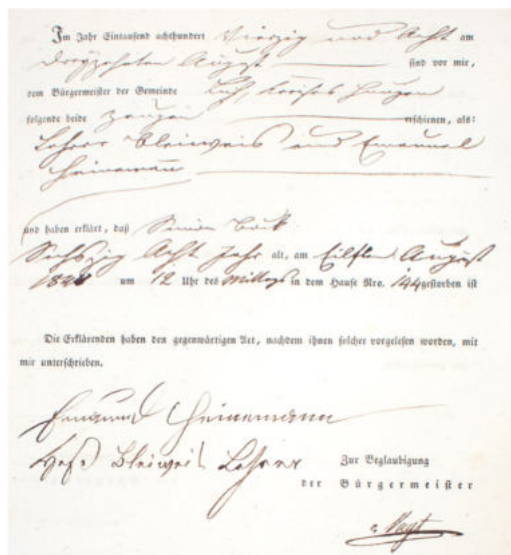 Im Jahr Eintausend achthundert Vierzig und Acht am
dreyzehnten August sind vor mir,
dem Bürgermeister der Gemeinde Lich, Kreises Hungen
folgende beide Zeugen erschienen, als:
Lehrer Bleiweis und Emanuel
Heinemann
und haben erklärt, daß Simon Bock
Sechszig Acht Jahr alt, am Eilften August
1848 um 12 Uhr des Mittags in dem Hause Nro. 144 gestorben ist
Die Erklärenden haben den gegenwärtigen Act, nachdem ihnen solcher vorgelesen worden, mit
mir unterschrieben.
Emanuel Heinemann
Bleiweis Lehrer
Zur Beglaubigung
der Bürgermeister
Vogt